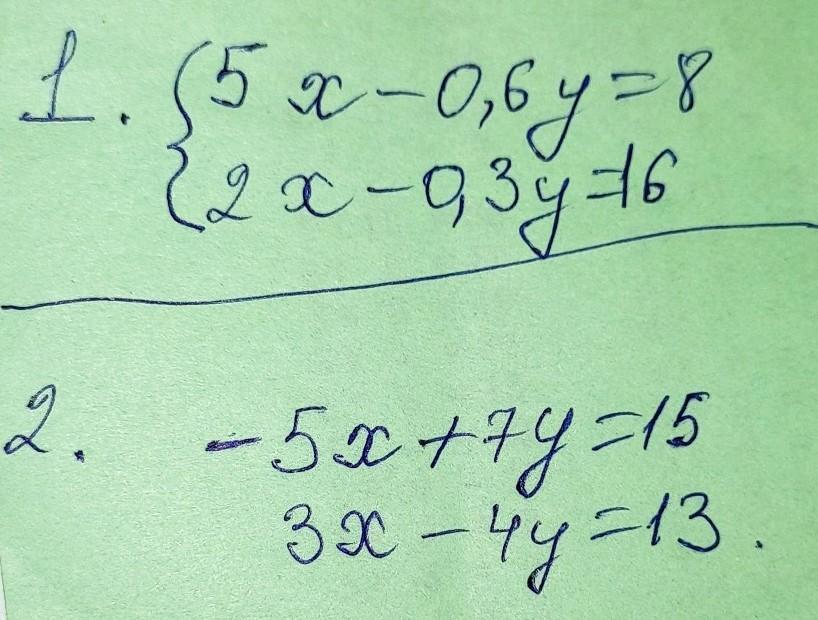 1. { 5x - 0,6y = 8
2x - 0,3y = 16
2. -5x + 7y = 15
3x - 4y = 13.